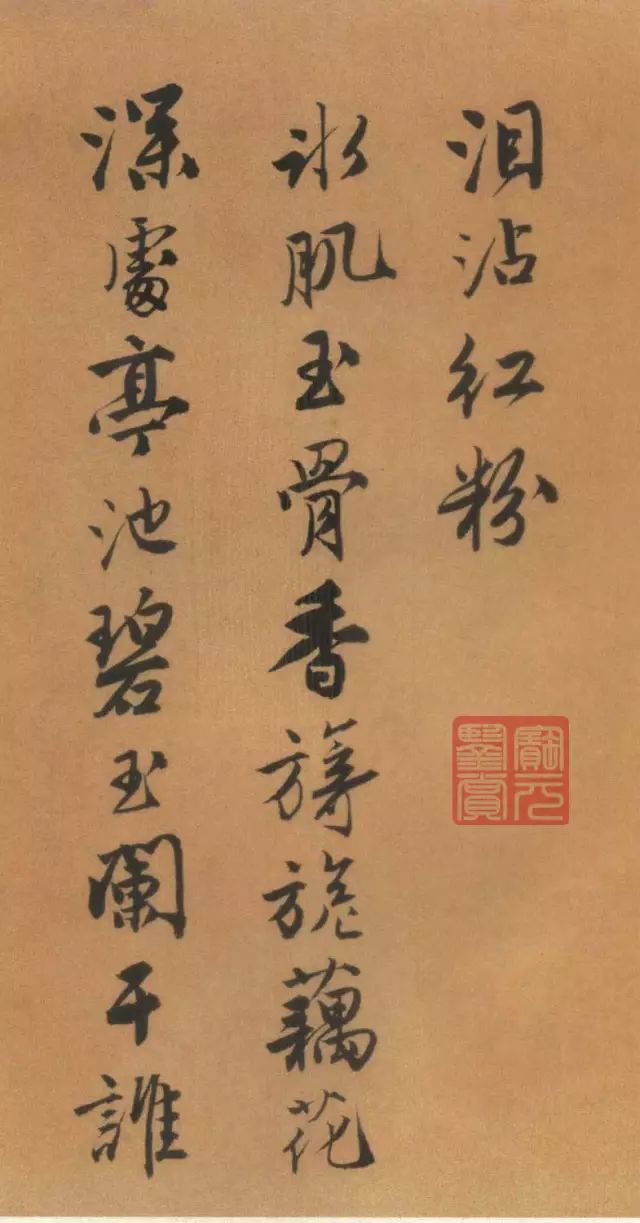 泪沾红粉
冰肌玉骨香旖旎藕花
深處亭池碧玉闌干誰
寶元
鑒賞